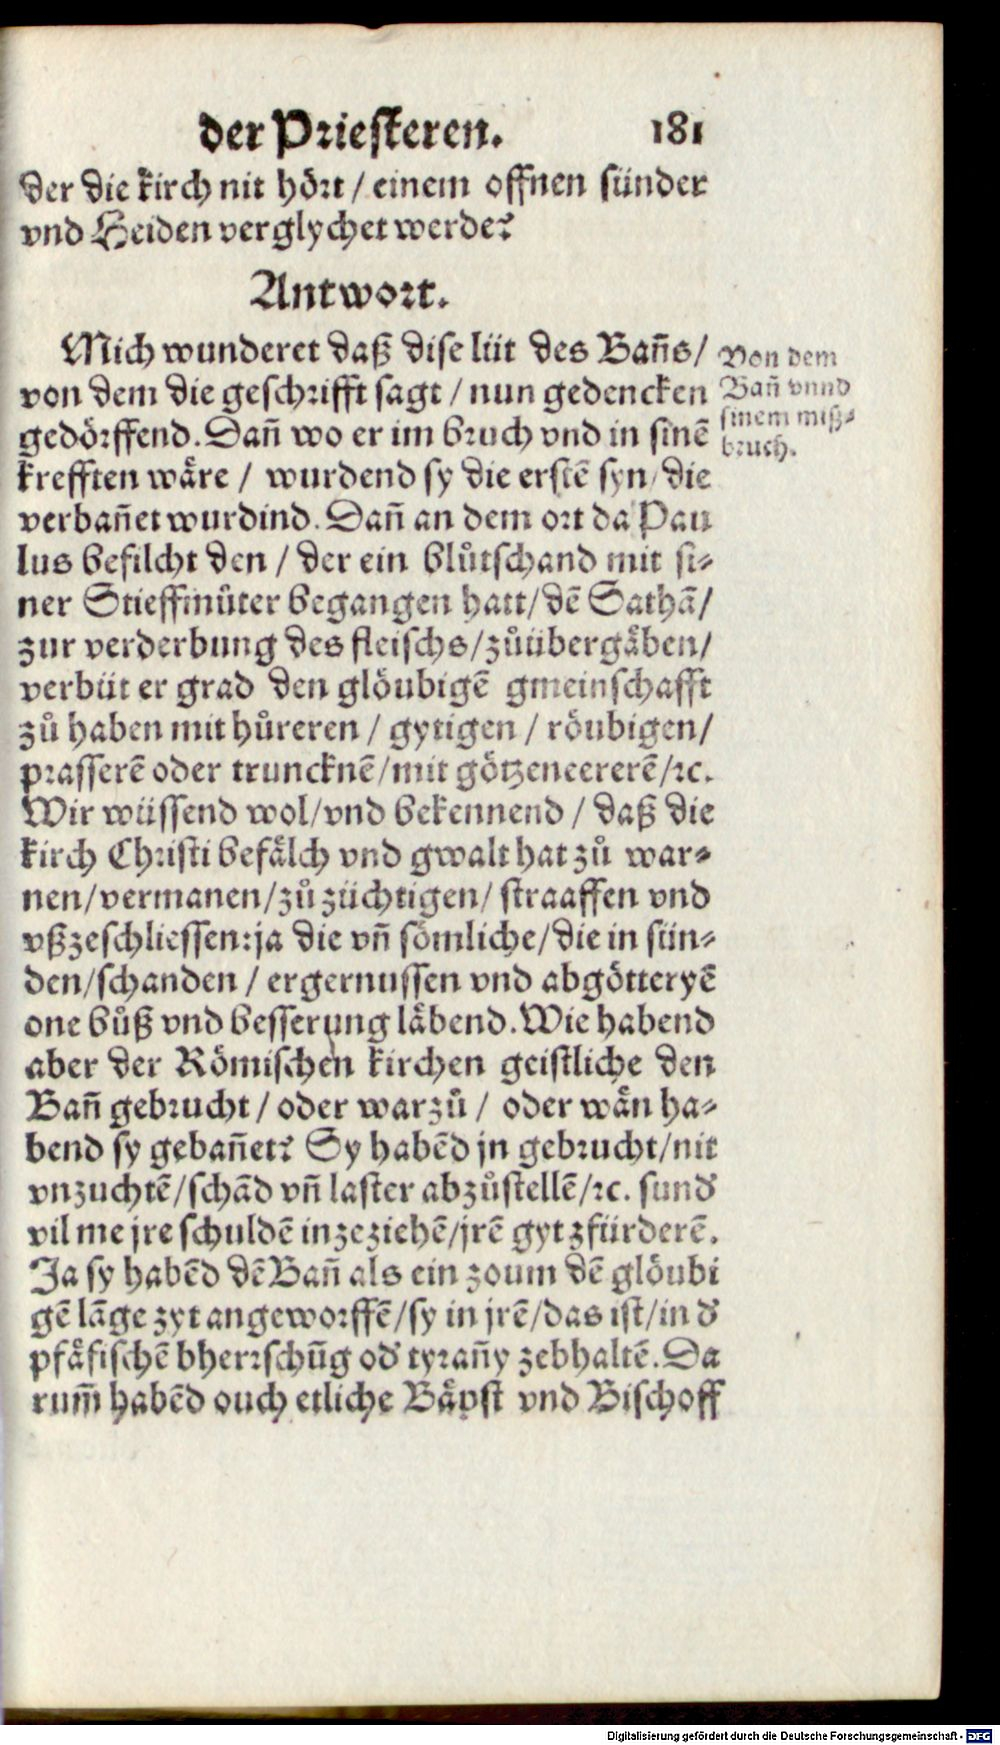 der Priesteren. 181
der die kirch nit hört / einem offnen sünder
vnd Heiden verglychet werde?
Antwort.
Mich wunderet daß dise lüt des Bañs /
von dem die geschrifft sagt / nun gedencken
gedörffend. Dañ wo er im bruch vnd in sinē
krefften wäre / wurdend sy die erstē syn / die
verbañet wurdind. Dañ an dem ort da Pau
lus befilcht den / der ein blůtschand mit si-
ner Stieffmůter begangen hatt / dē Sathā /
zur verderbung des fleischs / zůübergäben /
verbüt er grad den glöubigē gmeinschafft
zů haben mit hůreren / gytigen / röubigen /
prasserē oder trunncknē / mit götzeneererē / ꝛc.
Wir wüssend wol / vnd bekennend / daß die
kirch Christi befälch vnd gwalt hat zů war-
nen / vermanen / zů züchtigen / straaffen vnd
vßzeschliessen: ja die vñ sömliche / die in sün-
den / schanden / ergernussen vnd abgötteryē
one bůß vnd besserung läbend. Wie habend
aber der Römischen kirchen geistliche den
Bañ gebrucht / oder warzů / oder wän ha-
bend sy gebañet? Sy habēd jn gebrucht / nit
vnzuchtē / schād vñ laster abzůstellē / ꝛc. sund'
vil me jre schuldē inzeziehē / jrē gyt zfürderē.
Ja sy habēd dē Bañ als ein zoum dē glöubi
gē lāge zyt angeworffē / sy in jrē / das ist / in d'
pfäfischē bherrschūg od' tyrañy zebhaltē. Da
rum̃ habēd ouch etliche Bäpst vnd Bischoff
Von dem
Bañ vnnd
sinem miß-
bruch.
Digitalisierung gefördert durch die Deutsche Forschungsgemeinschaft - DFG